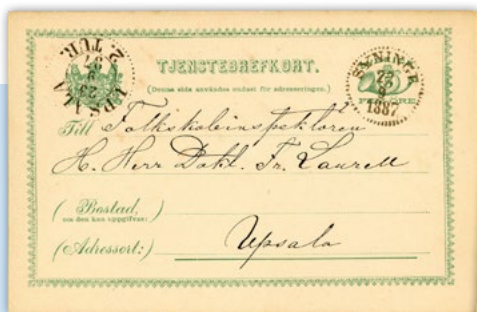 TJENSTEBREFKORT.
(Denna sida användes endast för adresseringen.)
UPSALA
2. TUR.
23
9
87
SKNINGE
22
9
1887
FEM ÖRE
Till Folkskoleinspektoren
H. Herr Dokt. Fr. Laurell
(Bostad,
om den kan uppgifvas:)
(Adressort:) Upsala